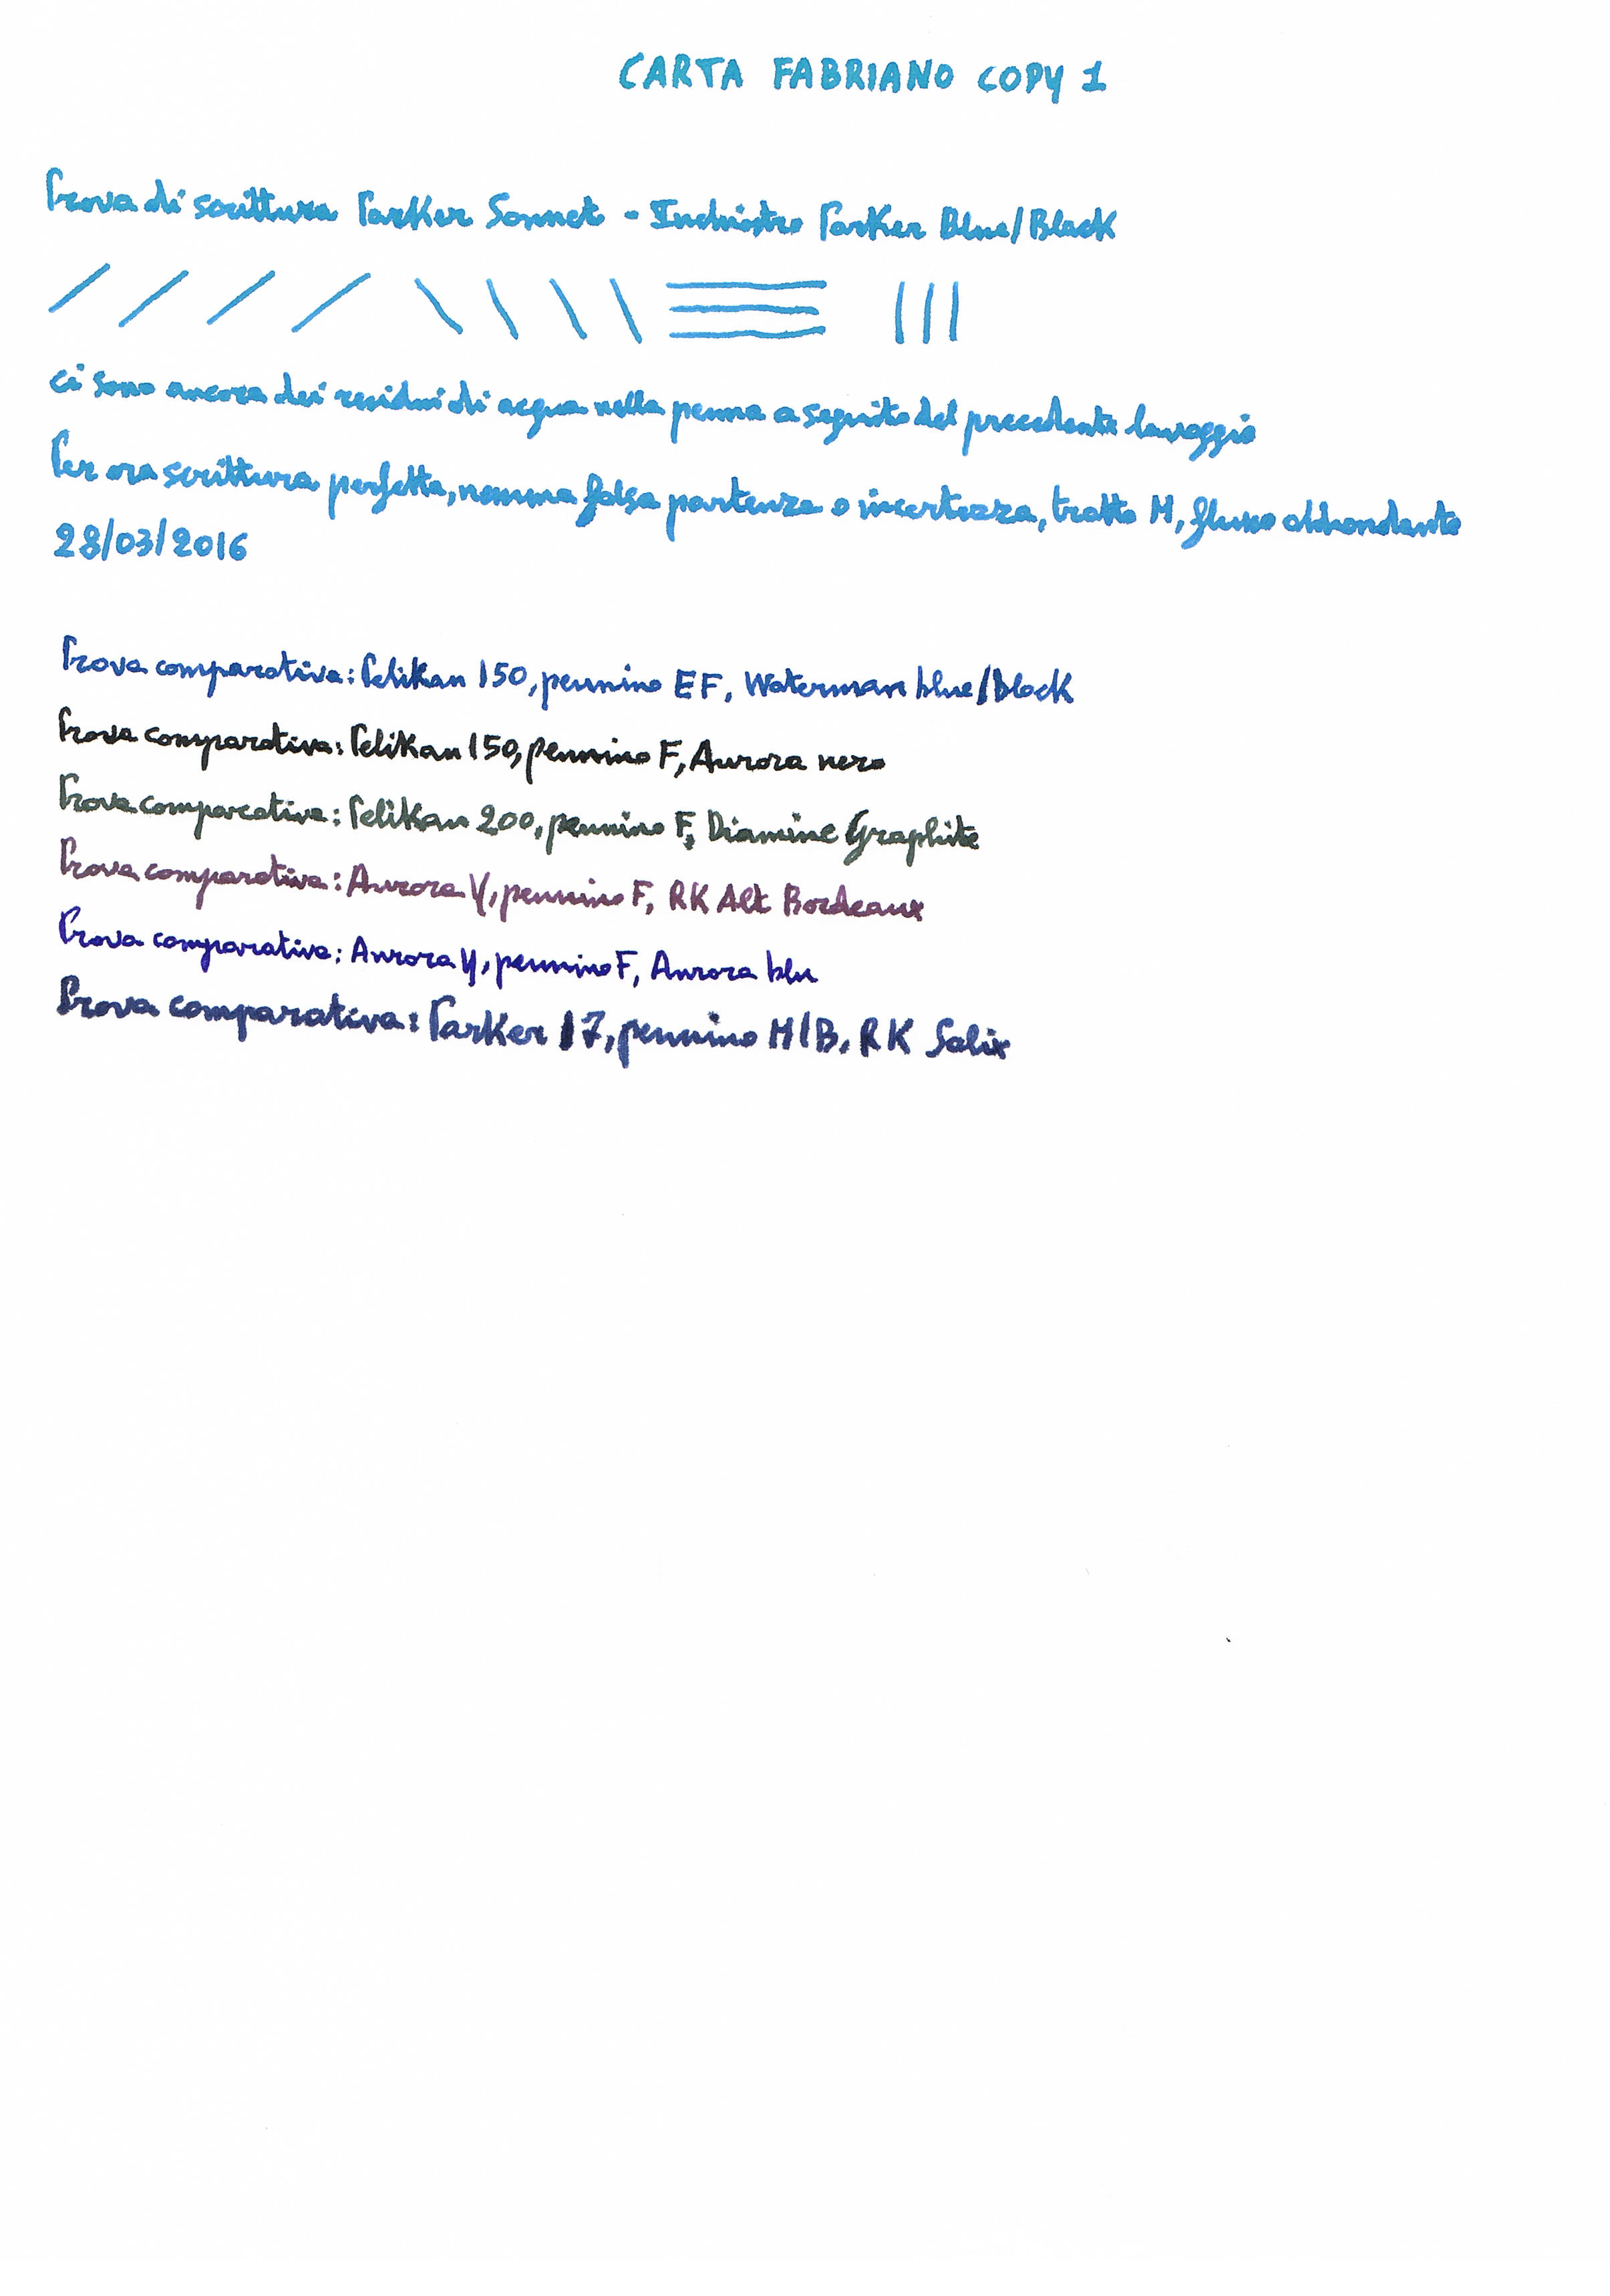 CARTA FABRIANO COPY 1
Prova di scrittura Parker Sonnet - Inchiostro Parker Blue/Black
Ci sono ancora dei residui di acqua nella penna a seguito del precedente lavaggio
Per ora scrittura perfetta, nessuna falsa partenza o incertezza, tratto M, flusso abbondante
28/03/2016
Prova comparativa: Pelikan 150, pennino EF, Waterman blue/black
Prova comparativa: Pelikan 150, pennino F, Aurora nero
Prova comparativa: Pelikan 200, pennino F, Diamine Graphite
Prova comparativa: Aurora Y, pennino F, RK Alt Bordeaux
Prova comparativa: Aurora Y, pennino F, Aurora blu
Prova comparativa: Parker 17, pennino M/B, RK Salix